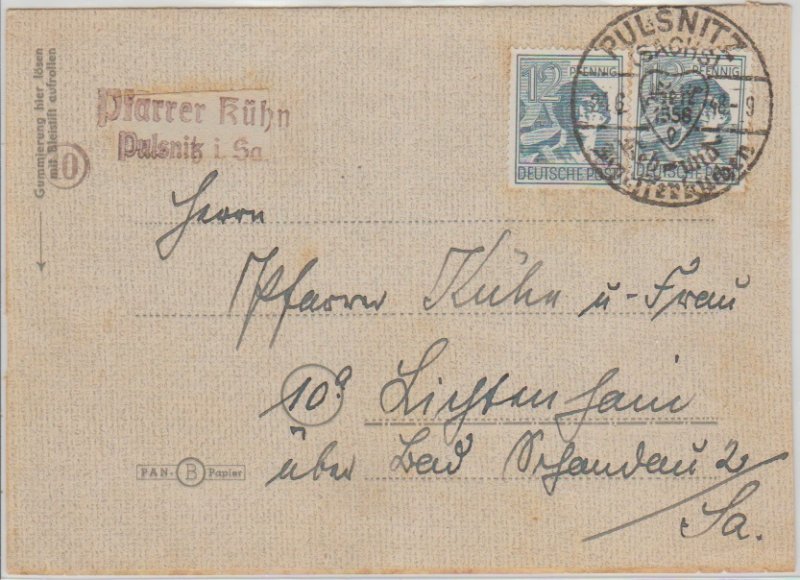 Gummierung hier lösen
mit Bleistift aufrollen
Pfarrer Kühn
Pulsnitz i. Sa.
10
12 PFENNIG
DEUTSCHE POST
12 PFENNIG
DEUTSCHE POST
PULSNITZ
(SACHS)
21.6. 48 - 9
Pfefferkuchen
Herrn
Pfarrer Kühn u. Frau
10a Lichtenhain
über Bad Schandau 2
Sa.
PAN- B Papier